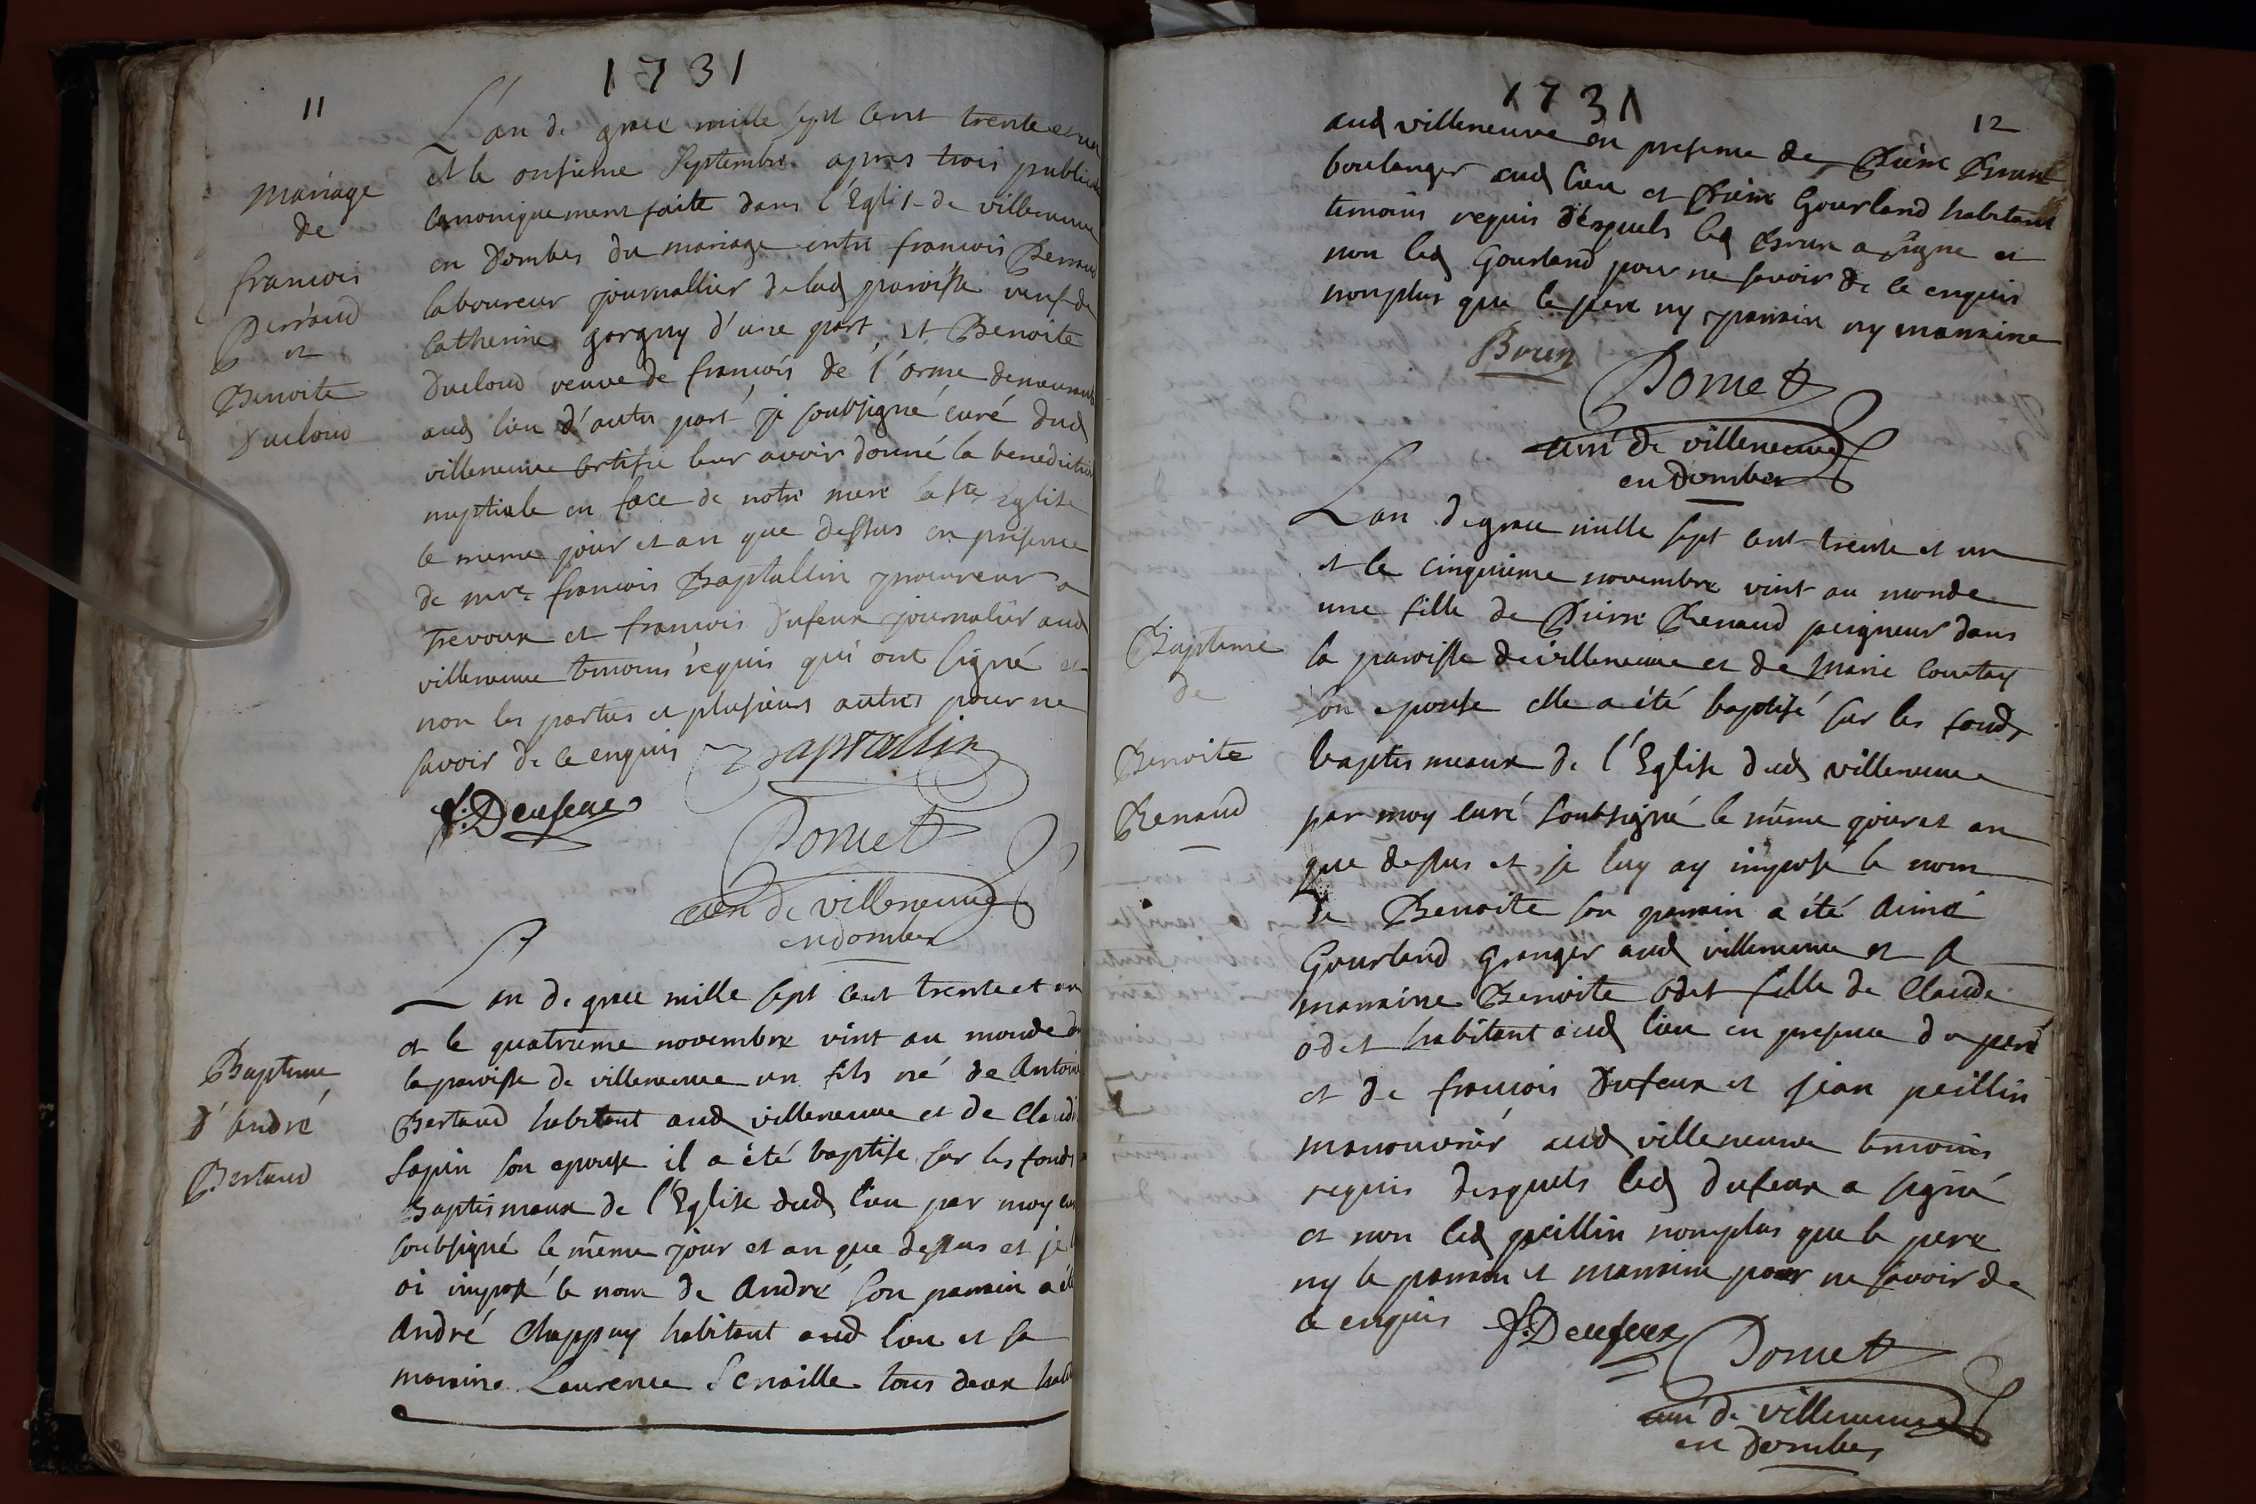 1731
11
Mariage
de
francois
Perraud
et
Benoite
Ducloud
L'an de grace mille sept cent trente et un
et le onsieme Septembre apres trois publica
canoniquement faite dans l'Eglise de villeneuve
en Dombes du mariage entre francois Perraud
laboureur journallier de lad paroisse veuf de
Catherine gorguy d'une part, et Benoite
Ducloud veuve de francois de l'orme demeurant
aud lieu d'autre part je soubsigné curé dud
villeneuve certifie leur avoir donné la benediction
nuptiale en face de notre mere la ste Eglise
le meme jour et an que dessus en presence
de mre francois Baptallin procureur a
Trevoux et francois Dufeux journalier aud
villeneuve temoins requis qui ont signé et
non les parties et plusieurs autres pour ne
savoir de ce enquis Baptallin
f: Deufeux
Pomet
curé de villeneuve
en dombes
Bapteme
d'André
Bertaud
L'an de grace mille sept cent trente et un
et le quatrieme novembre vint au monde d
la paroisse de villeneuve un fils né de Antoine
Bertaud habitant aud villeneuve et de Claudi
Sapin son epouse il a été baptise sur les fonds
Baptismaux de l'Eglise dud lieu par moy cu
soubsigné le même jour et an que dessus et je
ai imposé le nom de André son parrain a été
André Chappuy habitant aud lieu et sa
maraine Laurence Senaille tous deux hab
1731
12
aud villeneuve en presence de Pierre Brun
boulanger aud lieu et Pierre Gourland habitant
temoins requis desquels led Brun a signe et
non led Gourland pour ne savoir de ce enquis
nonplus que le pere ny parrain ny marraine
Brun
Pomet
curé de villeneuve
en Dombes
Bapteme
de
Benoite
Renaud
Lan de grace mille sept cent trente et un
et le cinquieme novembre vint au monde
une fille de Pierre Renaud peigneur dans
la paroisse de villeneuve et de Marie
son epouse elle a été baptisé sur les fonds
baptismaux de l'Eglise dud villeneuve
par moy curé soubsigné le même jour et an
que dessus et je luy ay imposé le nom
de Benoite son parrain a été Aimé
Gourland Granger aud villeneuve et sa
marraine Benoite Odet fille de Claude
odet habitant aud lieu en presence du pere
et de francois Dufeux et jean peillin
manouvrier aud villeneuve temoins
requis desquels led dufeux a signé
et non led peillin nonplus que le pere
ny le parrain et marraine pour ne savoir de
ce enquis f: Deufeux
Pomet
curé de villeneuve
en Dombes